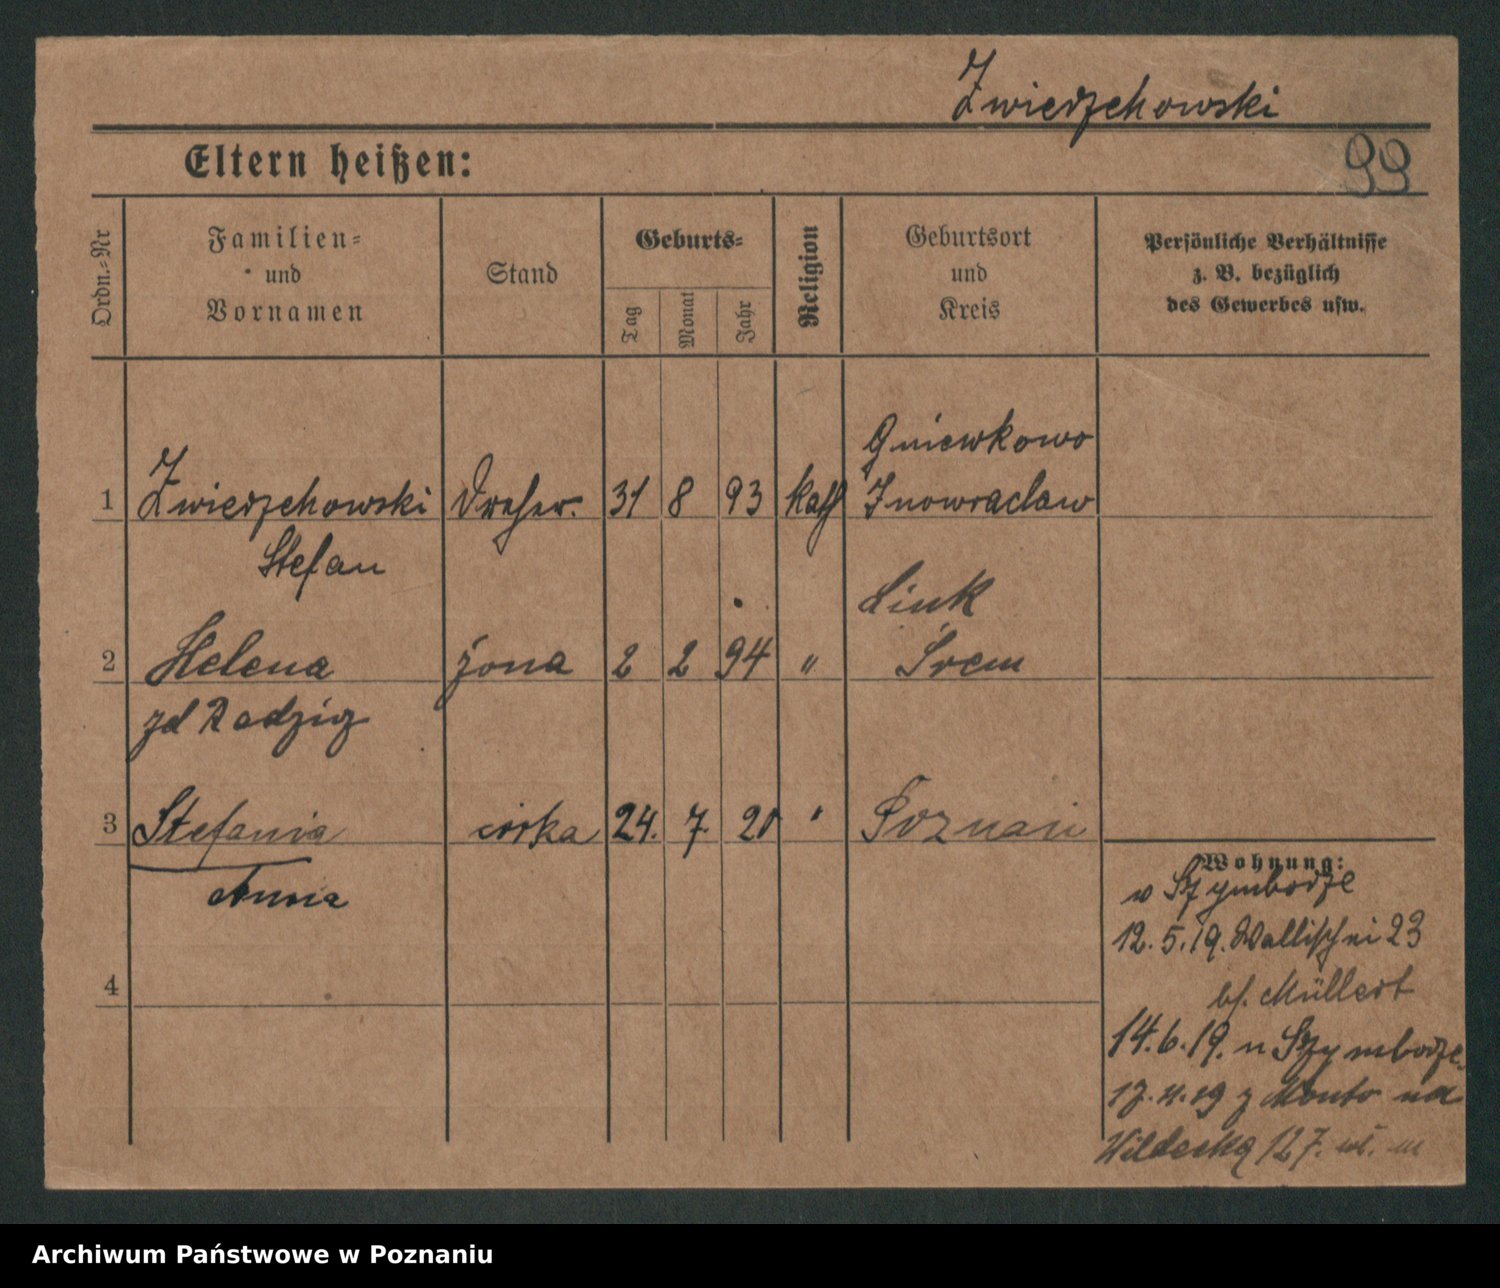 Zwierzchowski
Eltern heißen:
99
Ordn.=Nr
Familien=
und
Vornamen
Stand
Geburts=
Tag
Monat
Jahr
Religion
Geburtsort
und
Kreis
Persönliche Verhältnisse
z. B. bezüglich
des Gewerbes usw.
Gniewkowo
1 Zwierzchowski Dreher. 31 8 93 kath Inowraclaw
Stefan
Link
2 Helena żona 2 2 94 " Śrem
zd Radzig
3 Stefania córka 24. 7. 20 " Poznań
Anna
Wohnung:
v Szymborze
12. 5. 19. Wallischei 23
bf. Müllert
14. 6. 19. n Szymborze
17. 11. 19 z Montv na
Wildecką 127. wł. m
4
Archiwum Państwowe w Poznaniu